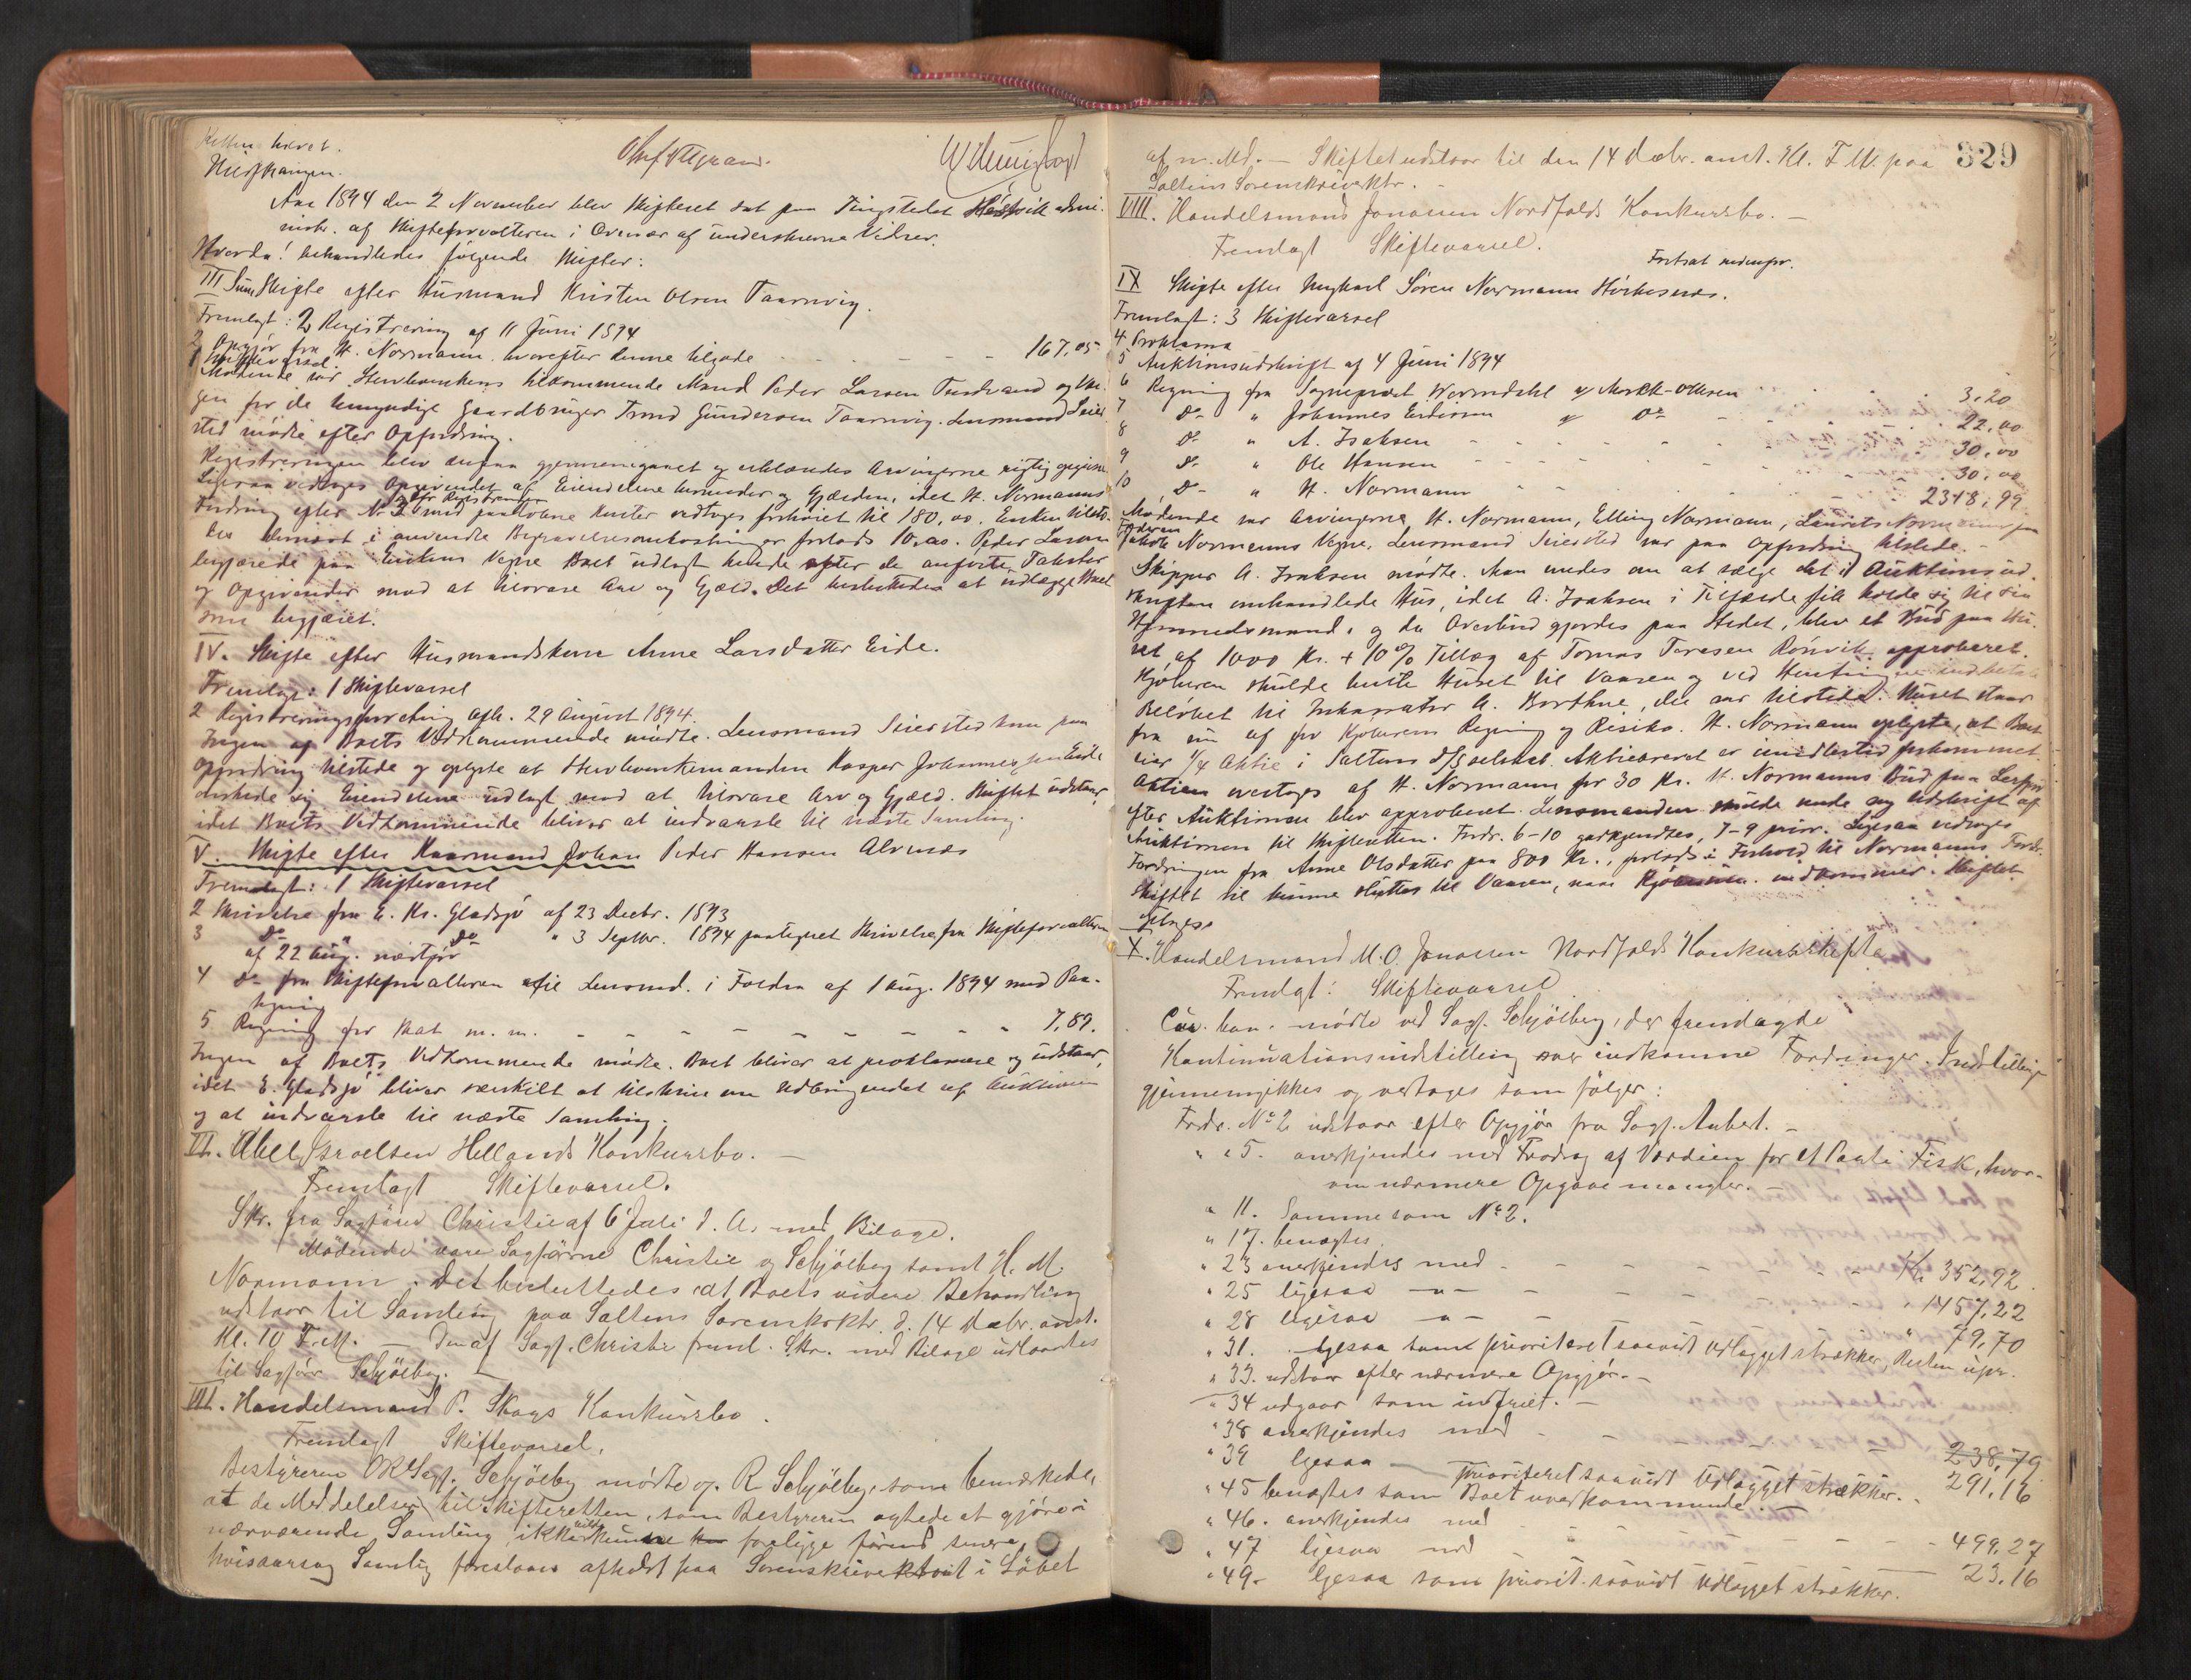 Retten hævet.
Aar 1894 den 2 November blev Skifteret sat paa Tingstedet admi-
nistr. af Skifteforvalteren i Overvær af underskrevne Vidner.
Hvorda! behandledes følgende Skifter:
III Skifte efter Husmand Kristen Olsen Taarnvig.
Fremlagt: 2 Registrering af 11 Juni 1894
2 Opgjør fra H. Normann hvorefter denne tilgode - - - - - 167,05
1 Skiftevarsel.
Mødende var Stervboenkens tilkommende Mand Peder Larsen og Vær-
gen for de umyndige Gaardbruger Trond Gundersen Taarnvig. Lensmand Seier
sted mødte efter Opfordring.
Registreringen blev gjennemgaaet og erklærdes Arvingerne rigtig opgivne
Ligesaa vedtoges Opgivendet af Eiendelene herunder og Gjælden, idet H. Normanns
Fordring efter No 2 med paaløbne Renter vedtoges forhøiet til 180,00. Enken tilsto-
des i anvendte Begravelsesomkostninger forlods 10,00. Peder Larsen
begjærede paa Enkens Vegne Boet udlagt hende efter de anførte Takster
og Opgivender mod at tilsvare Arv og Gjæld. Det besluttedes at udlægge Boet
som begjæret.
IV. Skifte efter Husmandskone Anne Larsdatter Eide.
Fremlagt: 1 Skiftevarsel
2 Registreringsforretning afh. 29 August 1894.
Ingen af Boets Vedkommende mødte. Lensmand Seiersted var paa
Opfordring tilstede og oplyste at Stervboenkemanden Kasper Johannessen Eide
ønskede sig Eiendelene udlagt mod at tilsvare Arv og Gjæld. Skiftet udstaar,
idet Boets Vedkommende bliver at indvarsle til næste Samling.
V. Skifte efter Kaarmand Johan Peder Hansen Alvenes
Fremlagt: 1 Skiftevarsel
2 Skrivelse fra E. Kr. Gladsjø af 23 Decbr. 1893
3 do do " 3 Septbr. 1894 paategnet Skrivelse fra Skifteforvalteren
af 22 Aug. næstfør
4 do fra Skifteforvalteren til Lensmd. i Folden af 1 Aug. 1894 med Paa-
tegning
5 Regning for Skat m. m. - - - - - - - - 7,89.
Ingen af Boets Vedkommende mødte. Boet bliver at proklamere og udstaar,
idet E. Gladsjø bliver særskilt at tilskrive om Udbringendet af Auktionen
og at indvarsle til næste Samling.
VI. Abel Israelsen Hellands Konkursbo. -
Fremlagt Skiftevarsel.
Skr. fra Sagfører Christie af 6 Juli d. A. med Bilage.
Mødende vare Sagførerne Christie og Schjølberg samt H. M.
Normann. Det besluttedes at Boets videre Behandling
udstaar til Samling paa Saltens Sorenskrktr. d. 14 Decbr. anst.
Kl. 10 F. M. - Den af Sagf. Christie freml. Skr. med Bilage udlaantes
til Sagfører Schjølberg. -
VII. Handelsmand P. Skags Konkursbo.
Fremlagt Skiftevarsel.
Bestyreren ORSagf. Schjølberg mødte v. R Schjølberg, som bemærkede,
at de Meddelelser til Skifteretten, som Bestyreren agtede at gjøre i
nærværende Samling, ikke vilde kunne foreligge førend senere,
hvisaarsag Samling foreslaaes afholdt paa Sorenskriverktoret i Løbet
329
af n. Md. - Skiftet udstaar til den 14 Decbr. anst. Kl. F M. paa
Saltens Sorenskriverktr. -
VIII. Handelsmand Jonassen Nordfolds Konkursbo. -
Fremlagt Skiftevarsel.
Fortsat nedenfor.
IX Skifte efter Ungkarl Søren Normann
Fremlagt: 3 Skiftevarsel
4 Proklama
5 Auktionsudskrift af 4 Juni 1894
6 Regning fra Sogneprest - - 3,20
7 do " Johannes do - 22,00
8 do " A. Isaksen - - - - - 30,00
9 do " Ole Hansen - - - - - 30,00
10 do " H. Normann - - - - 2348,99
Mødende var Arvingerne H. Normann, Elling Normann, Laurits Normann paa
Faderen Normanns Vegne. Lensmand Seiersted var paa Opfordring tilstede. -
Skipper A. Isaksen mødte. Man enedes om at sælge det i Auktionsud-
skriften omhandlede Hus, idet A. Isaksen i Tilfælde fik holde sig til sin
Hjemmelsmand, og da Overbud gjordes paa Stedet, blev et Bud paa Hu-
set af 1000 Kr. + 10% Tillæg af Tomas Rønvik approberet.
Kjøberen skulde hente Huset til Vaaren og ved Hentingen indbetale
Beløbet til Inkassator A. der var tilstede. Huset staar
fra nu af for Kjøberens Regning og Risiko. H. Normann oplyste, at Boet
eier 1/4 Aktie i Saltens D/Sselskab. Aktiebrevet er imidlertid forkommet.
Aktien overtages af H. Normann for 30 Kr. H. Normanns Bud paa
efter Auktionen blev approberet. Lensmanden skulde sende og Udskrift af
Auktionen til Skifteretten. Fordr. 6-10 godkjendtes, 7-9 prior. Ligesaa vedtoges
Fordringen fra Anne Olsdatter paa 800 Kr., forlods i Forhold til Normanns Fordr.
Skiftet til kunne sluttes til Vaaren, naar indkommer. Skiftet
X. Handelsmand M. O. Jonassen Nordfolds Konkursskifte
Fremlagt: Skiftevarsel
Cur. bon. mødte ved Sagf. Schjølberg, der fremlagde
Kontinuationsindstilling over indkomne Fordringer. Indstillingen
gjennemgikkes og vedtoges som følger:
Fordr. No 2 udstaar efter Opgjør fra Sagf. Aubert. -
" " 5. anerkjendes med Fradrag af Værdien for et Parti Fisk, hvor-
om nærmere Opgave mangler. -
" 11. Samme som No 2.
" 17. benægtes.
" 23 anerkjendes med - - - - - - - Kr. 352,92
" 25 ligesaa -"- - - - - - - " 1457,22
" 28 ligesaa -"- - - - - - - " 79,70
" 31. ligesaa samt prioriteret saavidt Udlægget strækker, Resten upr.
" 33. udstaar efter nærmere Opgjør. -
" 34 udgaar som indfriet. -
" 38 anerkjendes med - - - - - - 238,79
" 39 ligesaa - prioriteret saavidt Udlægget strækker. - 291,16
" 45 benægtes som Boet uvedkommende
" 46. anerkjendes med - - - - - - 499,27
" 47 ligesaa med - - - - - 23,16
" 49. ligesaa som priorit. saavidt Udlægget strækker.